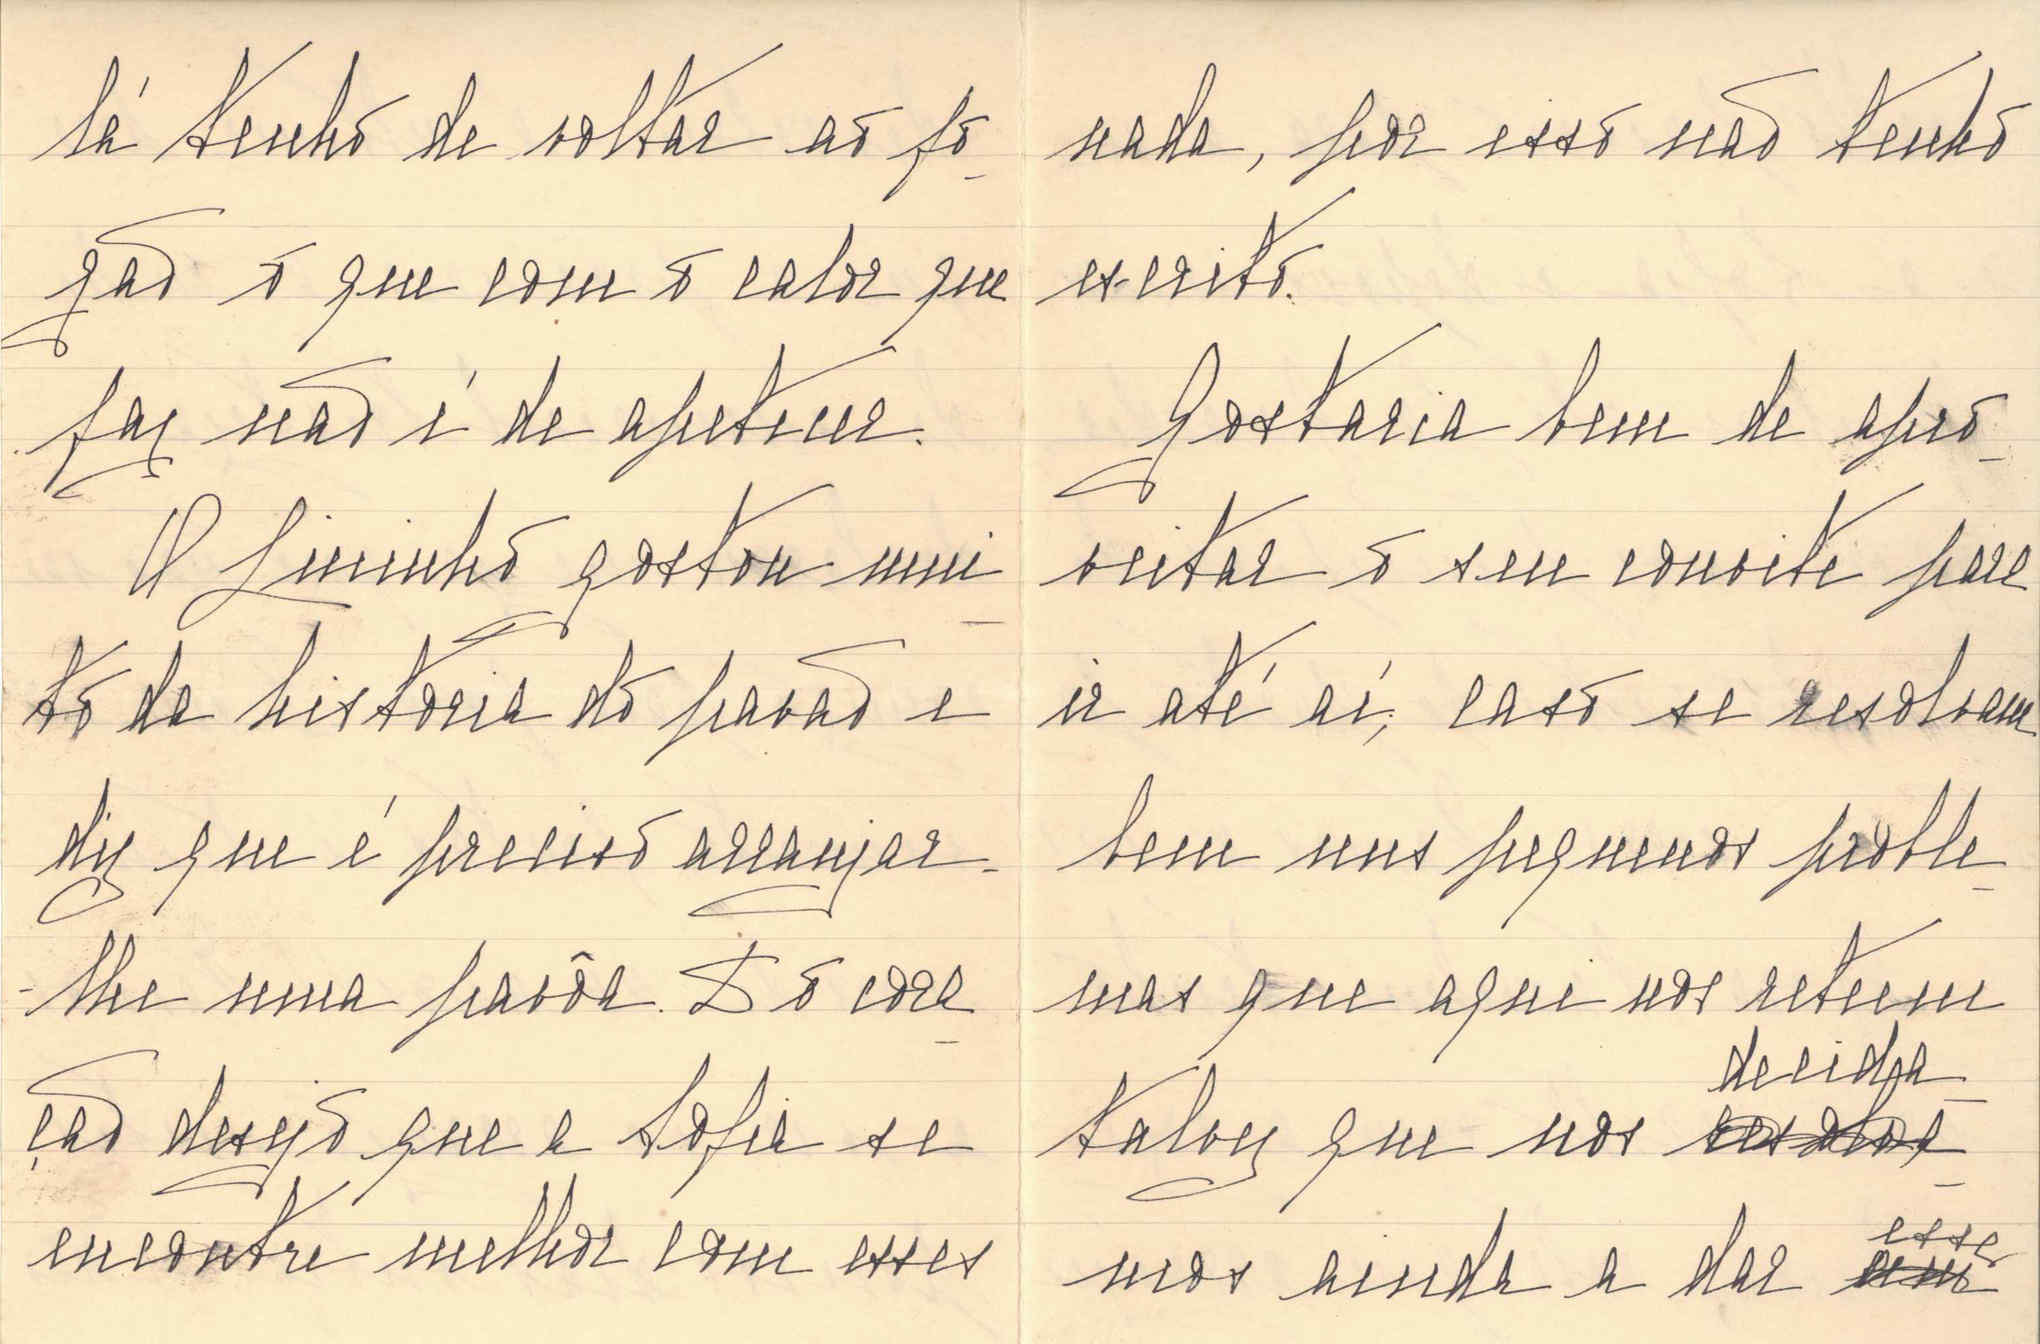 lá tenho de voltar ao fo-
gão o que com o calor que
faz não é de apetecer.
O Lininho gostou mui-
to da historia do pavão e
diz que é preciso arranjar-
-lhe uma pavôa. D o cora-
ção desejo que a Sofia se
encontre melhor com esses
nada, por isso não tenho
escrito.
Gostaria bem de apro-
veitar o seu convite para
ir até aí, caso se resolvam
bem uns pequenos proble-
mas que aqui nos reteem
decida-
talvez que nos resolva-
esse
mos ainda a dar um